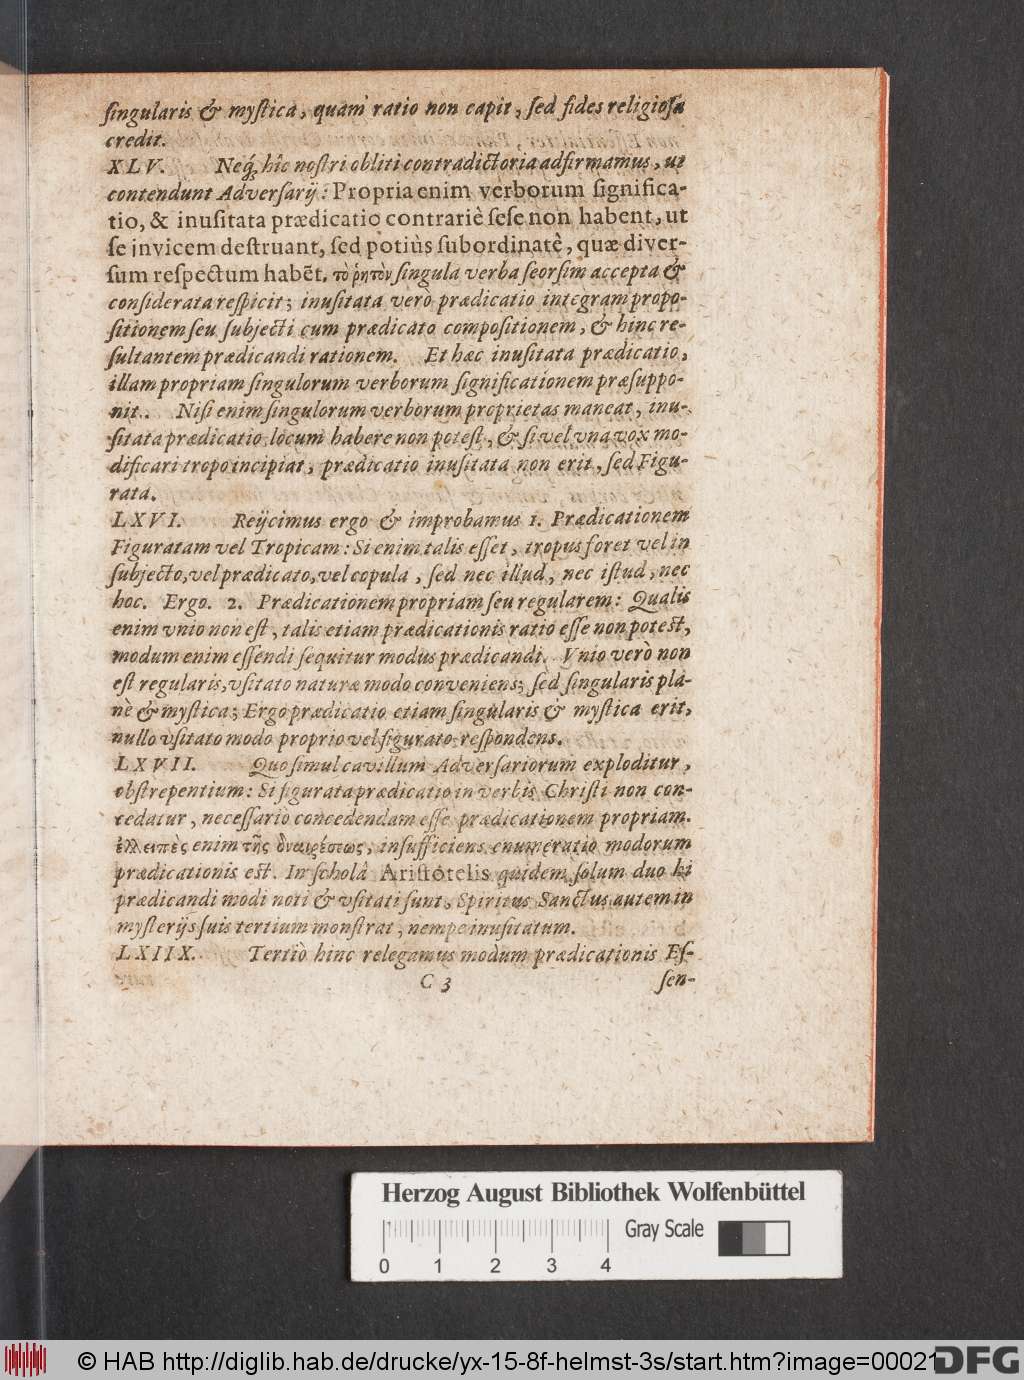 singularis & mystica, quam ratio non capit, sed fides religiosa
credit.
XLV. Neq́; hîc nostri obliti contradictoria adfirmamus, ut
contendunt Adversarij: Propria enim verborum significa-
tio, & inusitata prædicatio contrariè sese non habent, ut
se invicem destruant, sed potiùs subordinatè, quæ diver-
sum respectum habẽt. τὸ ῥητὸν singula verba seorsim accepta &
considerata respicit; inusitata verò prædicatio integram propo-
sitionem seu subjecti cum prædicato compositionem, & hinc re-
sultantem prædicandi rationem. Et hæc inusitata prædicatio,
illam propriam singulorum verborum significationem præsuppo-
nit. Nisi enim singulorum verborum proprietas maneat, inu-
sitata prædicatio locum habere non potest, & si vel vna vox mo-
dificari tropo incipiat, prædicatio inusitata non erit, sed Figu-
rata.
LXVI. Reijcimus ergo & improbamus 1. Prædicationem
Figuratam vel Tropicam: Si enim talis esset, tropus foret vel in
subjecto, vel prædicato, vel copula, sed nec illud, nec istud, nec
hoc. Ergo. 2. Prædicationem propriam seu regularem: Qualis
enim vnio non est, talis etiam prædicationis ratio esse non potest,
modum enim essendi sequitur modus prædicandi. Vnio verò non
est regularis, vsitato naturæ modo conveniens; sed singularis pla-
nè & mystica; Ergo prædicatio etiam singularis & mystica erit,
nullo vsitato modo proprio vel figurato respondens.
LXVII. Quo simul cavillum Adversariorum exploditur,
obstrepentium: Si figurata prædicatio in verbis Christi non con-
cedatur, necessariò concedendam esse prædicationem propriam.
ἐλλειπὲς enim τῆς διαιρέσεως, insufficiens enumeratio modorum
prædicationis est. In scholâ Aristotelis quidem solum duo hi
prædicandi modi noti & vsitati sunt, Spiritus Sanctus autem in
mysterijs suis tertium monstrat, nempe inusitatum.
LXIIX. Tertiò hinc relegamus modum prædicationis Es-
C 3 sen-
Herzog August Bibliothek Wolfenbüttel
Gray Scale
0 1 2 3 4
© HAB http://diglib.hab.de/drucke/yx-15-8f-helmst-3s/start.htm?image=00021
DFG